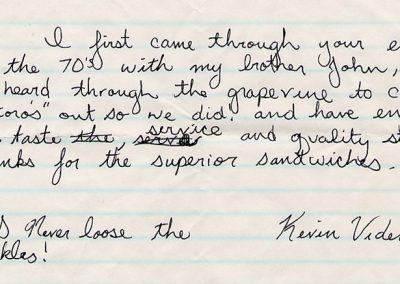 I first came through your e
the 70's with my brother John,
heard through the grapevine to c
toro's" out so we did. and have en
taste the, serv service and quality st
nks for the superior sandwiches.
S Never loose the Kevin Vider
kles!